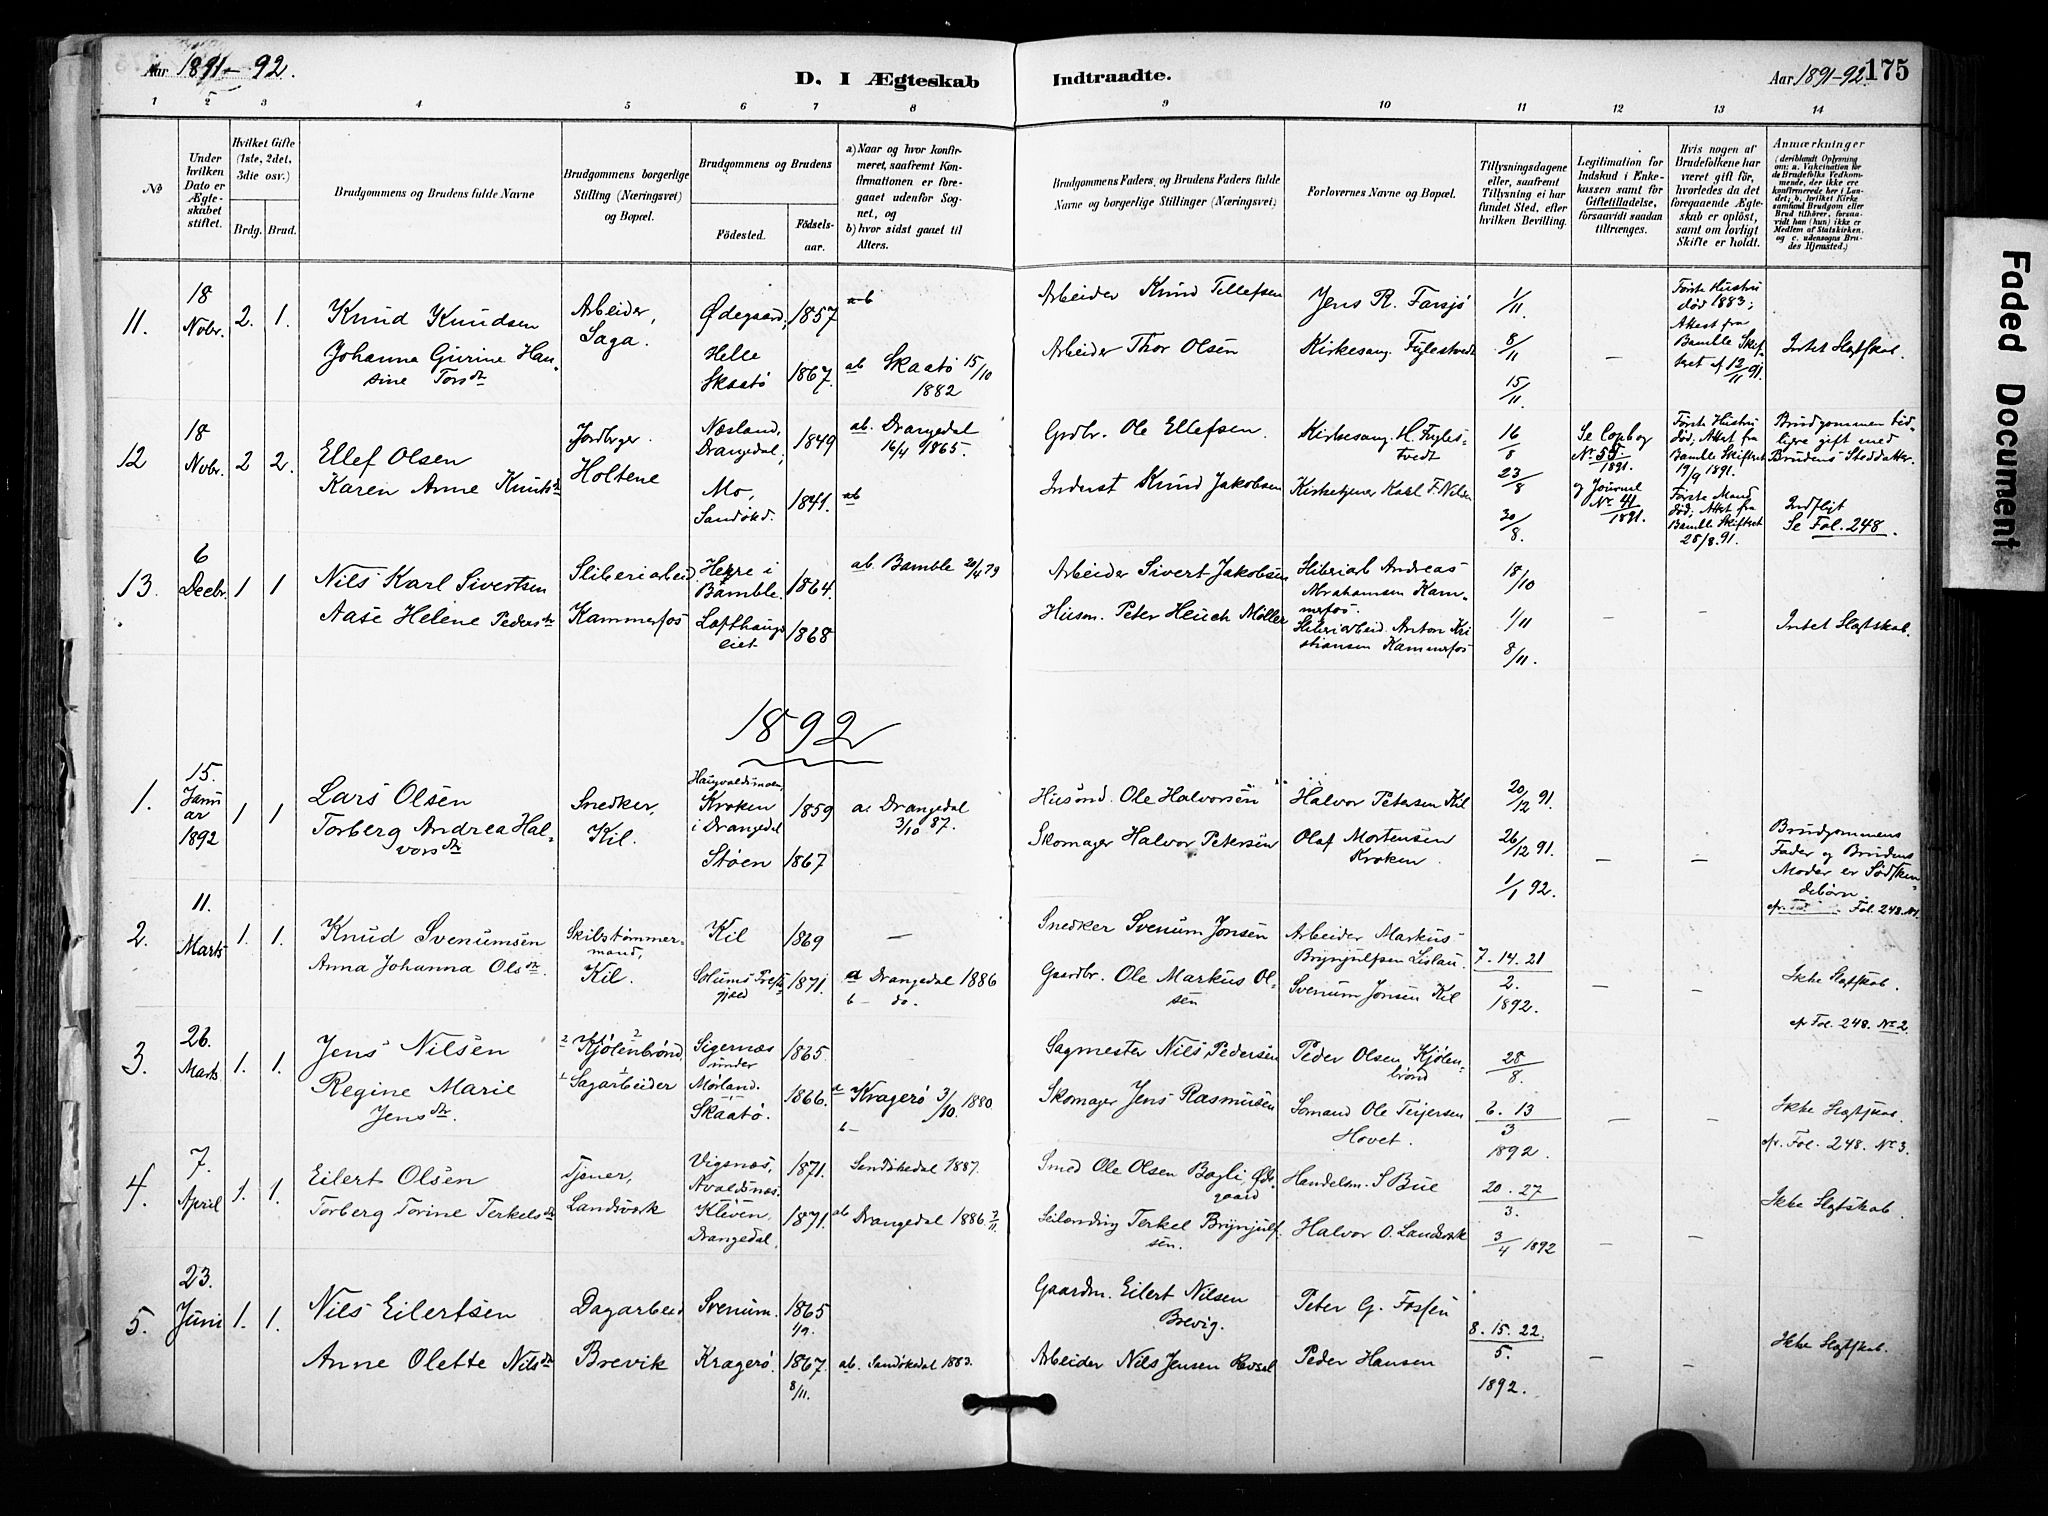 Aar 1891-92.
D. I Ægteskab Indtraadte.
Aar 1891-92. 175
1 2 3 4 5 6 7 8 9 10 11 12 13 14
№
Under hvilken Dato er Ægteskabet stiftet.
Hvilket Gifte (1ste, 2det, 3die osv.)
Brdg. Brud.
Brudgommens og Brudens fulde Navne
Brudgommens borgerlige Stilling (Næringsvei) og Bopæl.
Brudgommens og Brudens
Fødested. Fødselsaar.
a) Naar og hvor konfirmeret, saafremt Konfirmationen er foregaaet udenfor Sognet, og
b) hvor sidst gaaet til Alters.
Brudgommens Faders, og Brudens Faders fulde Navne og borgerlige Stillinger (Næringsvei)
Forlovernes Navne og Bopæl.
Tillysningsdagene eller, saafremt Tillysning ei har fundet Sted, efter hvilken Bevilling.
Legitimation for Indskud i Enkekassen samt for Giftetilladelse, forsaavidt saadan tiltrænges.
Hvis nogen af Brudefolkene har været gift før, hvorledes da det foregaaende Ægteskab er opløst, samt om lovligt Skifte er holdt.
Anmærkninger
(deriblandt Oplysning om: a. Vakcination for de Brudefolks Vedkommende, der ikke ere konfirmerede her i Landet; b. hvilket Kirkesamfund Brudgom eller Brud tilhører, forsaavidt han (hun) ikke er Medlem af Statskirken, og c. udensogns Brudes Hjemsted.)
11. 18 Novbr. 2. 1.
Knud Knudsen
Johanna Gurine Hansine Torsdtr
Arbeider, Saga.
Ødegaard, 1857 ab
Helle Skaatø 1867. ab Skaatø 15/10 1882
Arbeider Knud Tellefsen
Arbeider Thor Olsen
Jens R. Farsjø
Kirkesang. Fylestvedt
1/11 8/11 15/11
—
Første Hustru død 1883; Attest fra Bamble Skifteret af 12/11 91.
Intet Slægtskab.
12 18 Novbr. 2 2.
Ellef Olsen
Karen Anne Knutsdtr
Jordbrger. Holtene
Næsland, Drangedal, 1849 ab. Drangedal 16/4 1865.
Mo, Sandøkd. 1841. ab
Grdbr. Ole Ellefsen.
Inderst Knud Jakobsen
Kirkesang. H. Fylestvedt
Kirketjener Karl F. Nilsen
16/8 23/8 30/8.
Se Copbog № 55 1891. og Journal № 41 1891.
Første Hustru død; Attest fra Bamble Skifteret 19/9 1891. Første Mand død; Attest fra Bamble Skifteret 25/8. 91.
Brudgommen tidligre gift med Brudens Steddatter. Indfløjt Se Fol. 248.
13. 6 Decbr. 1 1
Nils Karl Sivertsen
Aase Helene Pedersdtr
Sliberiarbeid Kammerfos
Herre i Bamble. 1864. ab Bamble 20/4 79
Lofthaugeiet 1868
Arbeider Sivert Jakobsen
Husm. Peter Heuch Møller
Sliberiarb Andreas Abrahamsen Kammerfos.
Sliberiarbeid. Anton Kristiansen Kammerfos
18/10 1/11 8/11.
— —
Intet Slægtskab.
1892
1. 15. Januar 1892 1 1
Lars Olsen
Torberg Andrea Halvorsdtr
Snedker, Kil.
Haugvaldsmoen, Kroken i Drangedal 1859 a. Drangedal 3/10 87.
Støen 1867
Husmd. Ole Halvorsen
Skomager Halvor Petersen
Halvor Petersen Kil
Olaf Mortensen Kroken.
20/12 91. 26/12 91. 1/1 92.
— —
Brudgommens Fader og Brudens Moder er Sødskendebørn. cfr. Fol. 248. №1.
2. 11. Marts 1. 1.
Knud Svenumsen
Anna Johanna Olsdtr.
Skibstømmermand, Kil.
Kil 1869 —
Solums Prestgjæld 1871. a Drangedal 1886 b — do.
Snedker Svenum Jonsen
Gaardbr. Ole Markus Olsen
Arbeider Markus Brynjulfsen Lislau.
Svenum Jonsen Kil
7. 14. 21 2. 1892.
— —
Ikke Slægtskab. cfr Fol. 248. № 2.
3. 26. Marts 1. 1.
Jens Nilsen
Regine Marie Jensdtr.
2 Kjølenbrønd 2
1 Sagarbeider 1
Sigernæs under Mørland. 1865. —
Skaatø. 1866. a Kragerø 3/10. 1880 b —
Sagmester Nils Pedersen
Skomager Jens Rasmusen
Peder Olsen Kjølenbrønd
Sømand Ole Teijersen Hovet.
28/8. 6. 13 3 1892.
— —
Ikke Slægtskab cfr. Fol. 248. № 3.
4. 7. April 1. 1.
Eilert Olsen
Torberg Torine Terkelsdtr
Tjener, Landsverk
Vigsnæs, Avaldsnæs. 1871. Sandøkedal 1887.
Kleven, Drangedal. 1871. ab Drangedal 1886 7/11
Smed Ole Olsen Bagli, Ødegaard
Terkel Brynjulfsen.
Handelsm. S Bue
Halvor O. Landsverk
20. 27 3. 3/4 1892
— —
Ikke Slægtskab.
5. 23. Juni 1. 1.
Nils Eilertsen
Anne Olette Nilsdtr
Dagarbeid Brevik
Svenum. 1865 1/9.
Kragerø. 1867. 8/11. ab. Sandøkedal 1883.
Gaardm. Eilert Nilsen Brevig.
Arbeider Nils Jensen
Peter G. Fossen
Peder Hansen
8. 15. 22. 5. 1892.
— —
Ikke Slægtskab.
Faded Document